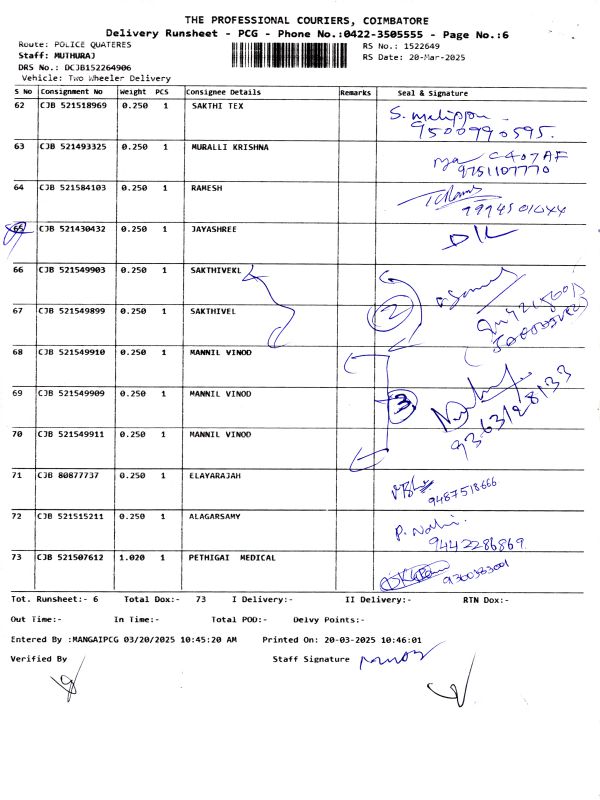 THE PROFESSIONAL COURIERS, COIMBATORE
Delivery Runsheet - PCG - Phone No.:0422-3505555 - Page No.:6
Route: POLICE QUATERES
RS No.: 1522649
Staff: MUTHURAJ
RS Date: 20-Mar-2025
DRS No.: DCJB152264906
Vehicle: Two Wheeler Delivery
S No Consignment No Weight PCS Consignee Details Remarks Seal & Signature
62 CJB 521518969 0.250 1 SAKTHI TEX
9500990595.
63 CJB 521493325 0.250 1 MURALLI KRISHNA
C407AF
9751107770
64 CJB 521584103 0.250 1 RAMESH
65 CJB 521430432 0.250 1 JAYASHREE
D/L
66 CJB 521549903 0.250 1 SAKTHIVEKL
67 CJB 521549899 0.250 1 SAKTHIVEL
2
68 CJB 521549910 0.250 1 MANNIL VINOD
69 CJB 521549909 0.250 1 MANNIL VINOD
3
9363128133
70 CJB 521549911 0.250 1 MANNIL VINOD
71 CJB 80877737 0.250 1 ELAYARAJAH
9487518666
72 CJB 521515211 0.250 1 ALAGARSAMY
9442286869
73 CJB 521507612 1.020 1 PETHIGAI MEDICAL
Tot. Runsheet:- 6 Total Dox:- 73 I Delivery:- II Delivery:- RTN Dox:-
Out Time:- In Time:- Total POD:- Delvy Points:-
Entered By :MANGAIPCG 03/20/2025 10:45:20 AM Printed On: 20-03-2025 10:46:01
Verified By Staff Signature